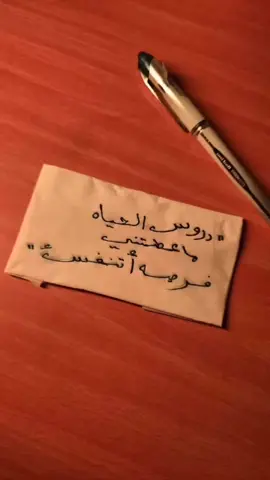 "دروس الحياه
ماعطتني
فرصه أتنفسّ"